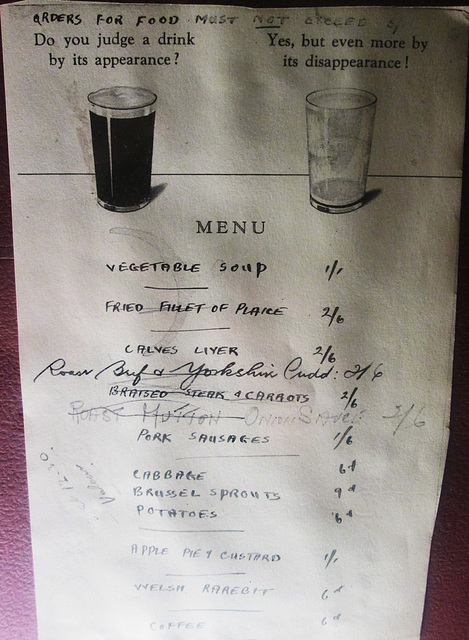 ORDERS FOR FOOD MUST NOT EXCEED 5/
Do you judge a drink
by its appearance?
Yes, but even more by
its disappearance!
MENU
VEGETABLE SOUP 1/-
FRIED FILLET OF PLAICE 2/6
CALVES LIVER 2/6
Roast Beef & Yorkshire Pudd: 2/6
BRAISED STEAK & CARROTS 2/6
ROAST MUTTON ONION SAUCE 2/6
PORK SAUSAGES 1/6
CABBAGE 6d
BRUSSEL SPROUTS 9d
POTATOES 6d
12.30
APPLE PIE & CUSTARD 1/-
WELSH RAREBIT 6d
COFFEE 6d